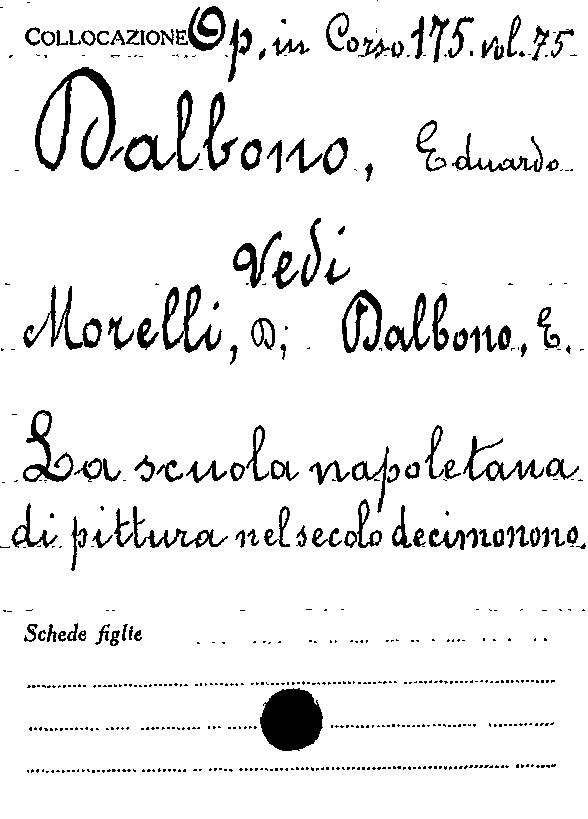 COLLOCAZIONE Op. in Corso 175. vol. 75
Dalbono, Eduardo
Vedi
Morelli, D; Dalbono, E.
La scuola napoletana
di pittura nel secolo decimonono.
Schede figlie